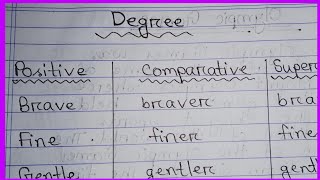 Degree
Positive Comparative Super
Brave braver bra
Fine finer fine
Gentle gentler gentl